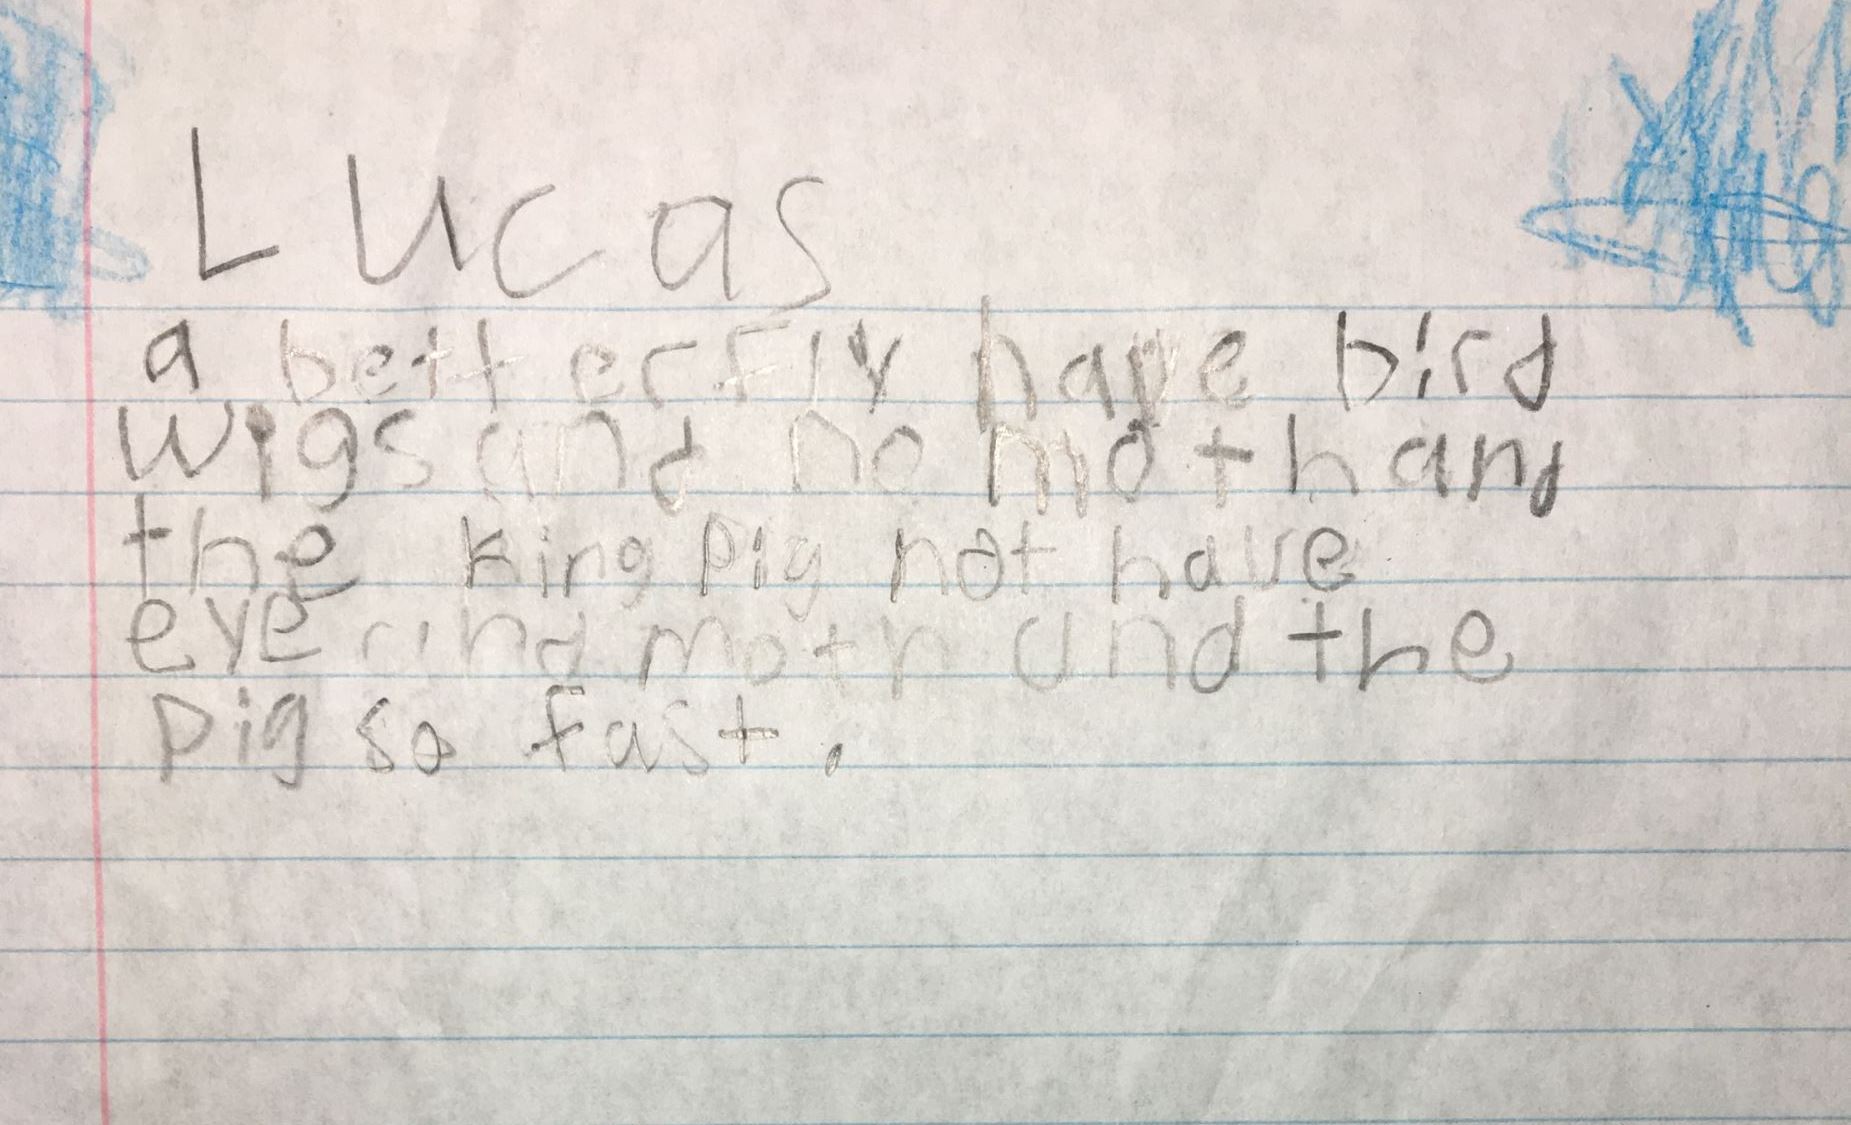 Lucas
a betterfly have bird
wigs and no moth and
the king pig not have
eye and moth and the
pig so fast.